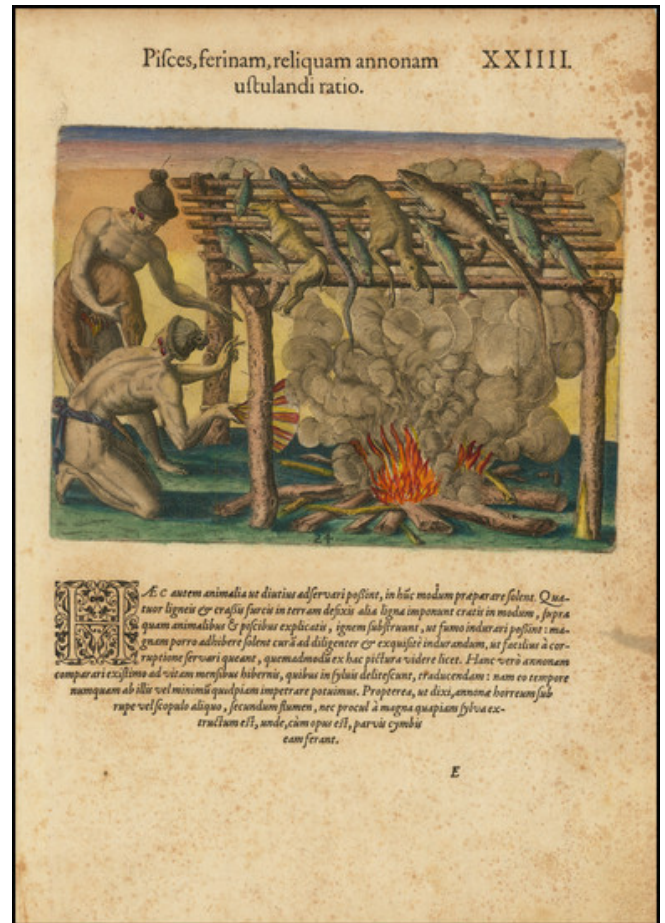 Piſces, ferinam, reliquam annonam XXIIII.
uſtulandi ratio.
24.
HÆC autem animalia ut diutius adſervari poßint, in hũc modum præparare ſolent. Qua-
tuor ligneis & craßis furcis in terram defixis alia ligna imponunt cratis in modum, ſupra
quam animalibus & piſcibus explicatis, ignem ſubſtruunt, ut fumo indurari poßint: ma-
gnam porro adhibere ſolent curã ad diligenter & exquiſitè indurandum, ut facilius à cor-
ruptione ſervari queant, quemadmodũ ex hac pictura videre licet. Hanc verò annonam
comparari exiſtimo ad vitam menſibus hibernis, quibus in ſylvis deliteſcunt, traducendam: nam eo tempore
numquam ab illis vel minimũ quidpiam impetrare potuimus. Propterea, ut dixi, annonæ horreum ſub
rupe vel ſcopulo aliquo, ſecundum flumen, nec procul à magna quapiam ſylva ex-
tructum eſt, unde, cùm opus eſt, parvis cymbis
eam ferant.
E